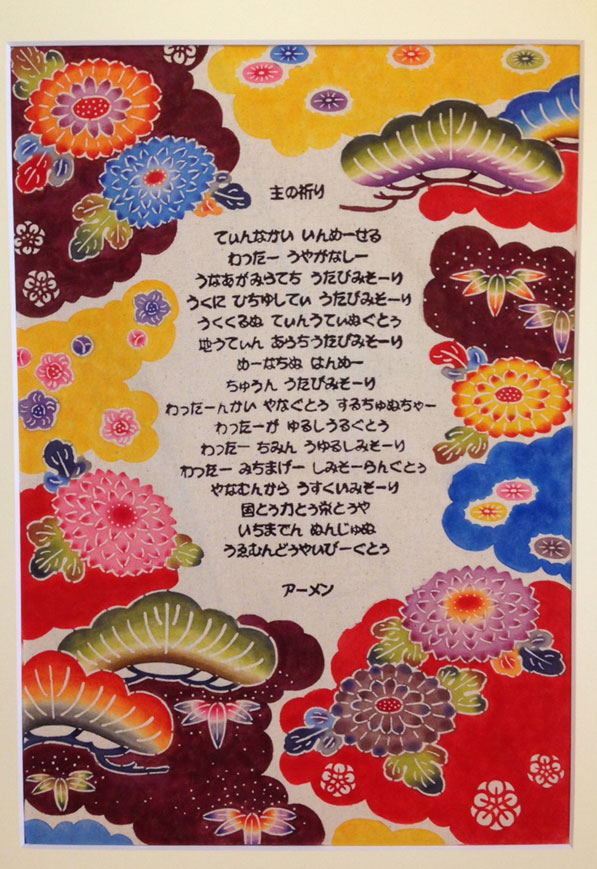 主の祈り
てぃんなかい いんめーせる
わったー うやがなしー
うなあがみらてち うたびみそーり
うくに ひちゆしてぃ うたびみそーり
うくくるぬ てぃんうてぃぬぐとぅ
地うてぃん あらちうたびみそーり
めーなちぬ はんめー
ちゅうん うたびみそーり
わったーんかい やなぐとぅ するちゅぬちゃー
わったーが ゆるしうるぐとぅ
わったー ちみん うゆるしみそーり
わったー みちまげー しみそーらんぐとぅ
やなむんから うすくいみそーり
国とぅ力とぅ栄とぅや
いちまでん ぬんじゅぬ
うゑむんどぅやいびーぐとぅ
アーメン